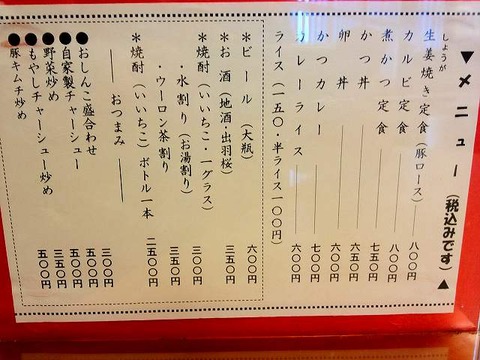 ▼メニュー(税込みです)▲
しょうが
生姜焼き定食(豚ロース)――八〇〇円
カルビ定食――八〇〇円
煮かつ定食――七五〇円
かつ丼――六五〇円
卵丼――六〇〇円
かつカレー――七〇〇円
カレーライス――六〇〇円
ライス(一五〇・半ライス一〇〇円)
*ビール(大瓶) 六〇〇円
*お酒(地酒・出羽桜) 三五〇円
*焼酎(いいちこ・一グラス)
水割り(お湯割り) 三〇〇円
・ウーロン茶割り 三五〇円
*焼酎(いいちこ)ボトル一本 二五〇〇円
――おつまみ――
●おしんこ盛合わせ 三〇〇円
●自家製チャーシュー 五〇〇円
●野菜炒め 五〇〇円
●もやしチャーシュー炒め 三五〇円
●豚キムチ炒め 五〇〇円